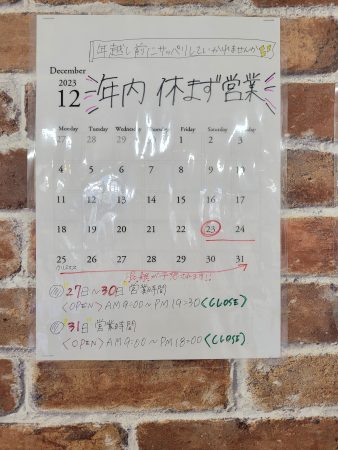 年越し前にサッパリしていかれませんか
December
2023
12
年内 休まず営業
Monday Tuesday Wednesday Thursday Friday Saturday Sunday
27 28 29 30 1 2 3
4 5 6 7 8 9 10
11 12 13 14 15 16 17
18 19 20 21 22 23 24
25 26 27 28 29 30 31
クリスマス
混雑が予想されます!!
27日〜30日 営業時間
<OPEN> AM 9:00〜PM 19:30 <CLOSE>
31日 営業時間
<OPEN> AM 9:00〜PM 18:00 <CLOSE>